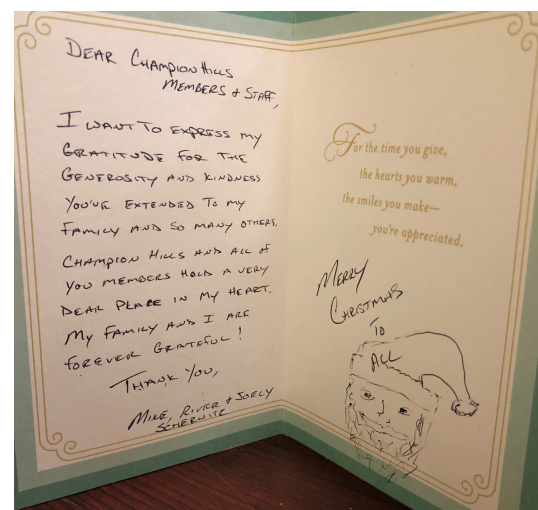 DEAR CHAMPION HILLS
MEMBERS & STAFF,
I WANT TO EXPRESS MY
GRATITUDE FOR THE
GENEROSITY AND KINDNESS
YOU'VE EXTENDED TO MY
FAMILY AND SO MANY OTHERS.
CHAMPION HILLS AND ALL OF
YOU MEMBERS HOLD A VERY
DEAR PLACE IN MY HEART.
MY FAMILY AND I ARE
FOREVER GRATEFUL!
THANK YOU,
MIKE, RIVER & JOELY
For the time you give,
the hearts you warm,
the smiles you make—
you're appreciated.
MERRY
CHRISTMAS
TO
ALL